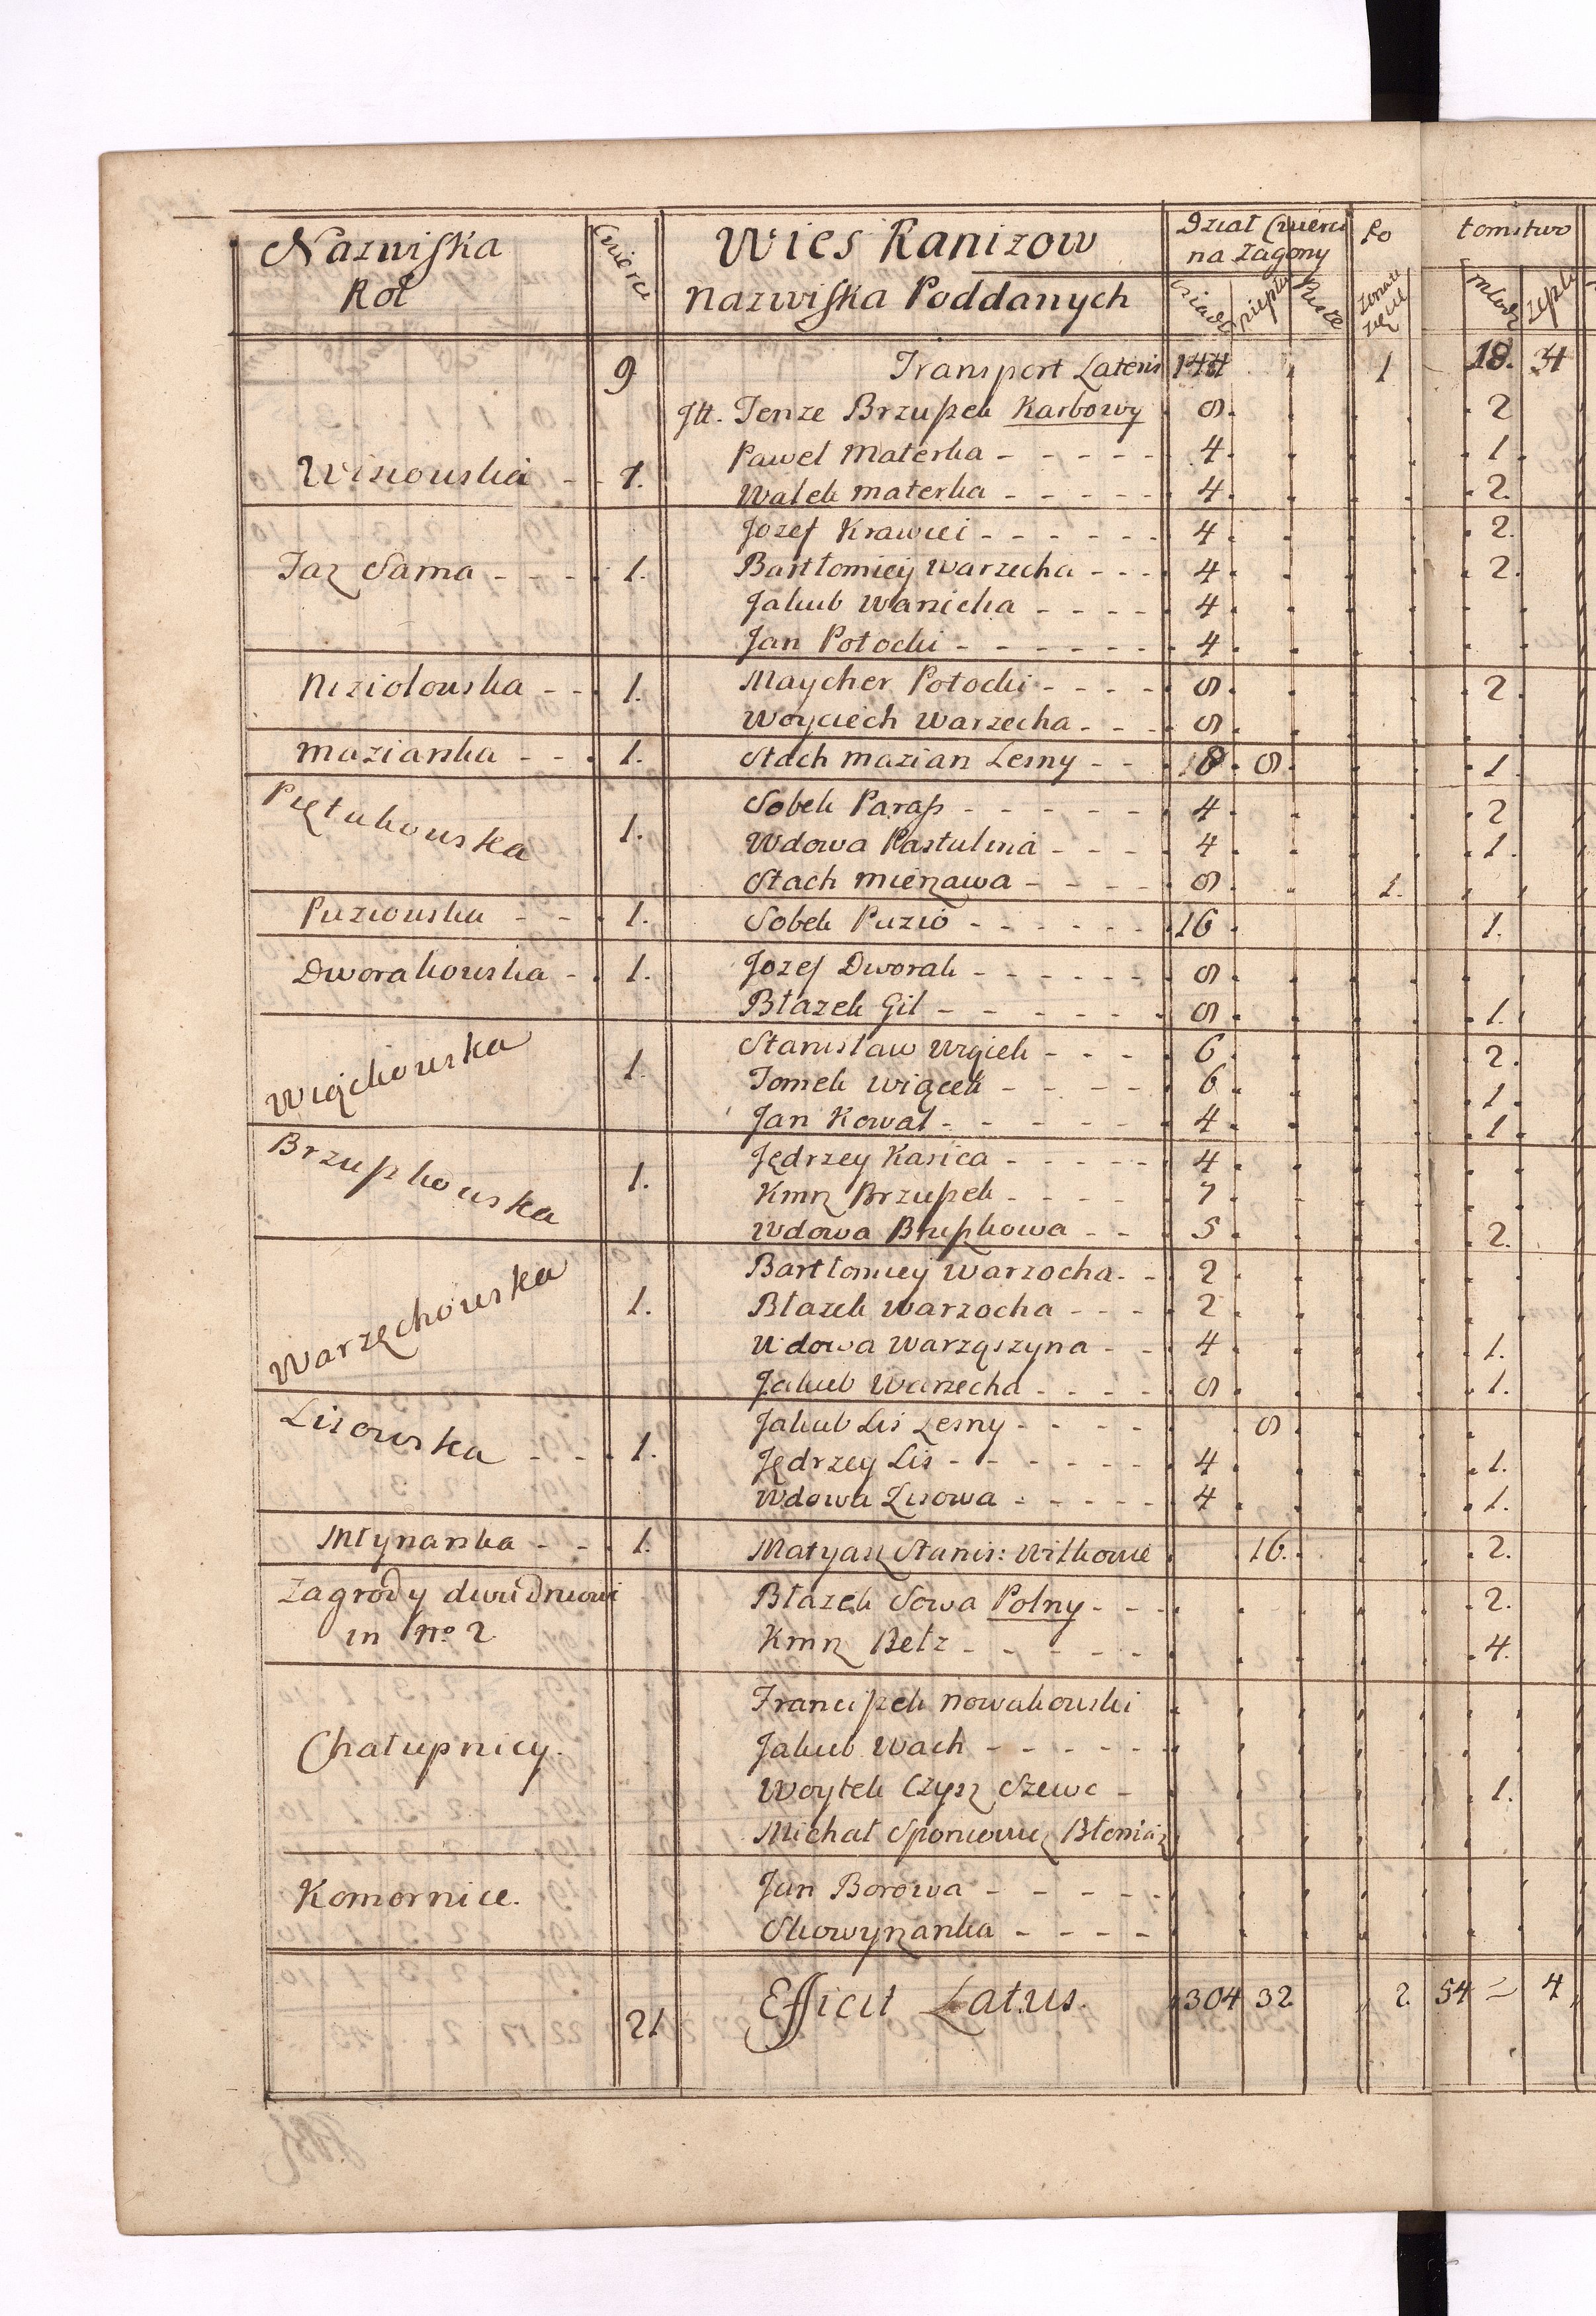 Nazwiska Rol Cwierci Wies Ranizow nazwiska Poddanych Dział Cwierci na Zagony Po tomstwo
ciądł piepli Puste żonate zięcie młodż żeplu
9 Transport Lateris 144 1 18. 34
Itt. Tenze Brzuszek Karbowy 8. 2
Pawel Materka 4. 1.
Wisiowska 1. Walek materka 4. 2.
Jozef Krawiec 4. 2.
Taz Sama 1. Bartłomiey Warzecha 4. 2.
Jakub Wanicha 4.
Jan Potocki 4.
Niziołowska 1. Maycher Potocki 8. 2
Woyciech Warzecha 8.
Mazianka 1. Stach Mazian Lesny 8 8. 1.
Piętakowska 1. Sobek Parasz 4. 2
Wdowa Pastulina 4. 1.
Stach Mierzawa 8. 1.
Puziowska 1. Sobek Puzio 16. 1.
Dworakowska 1. Jozef Dworak 8.
Błazek Gil 8. 1.
Więckowska 1. Stanisław Więcek 6. 2.
Tomek Wiącek 6. 1.
Jan Kowal 4. 1.
Brzuszkowska 1. Jędrzey Kasica 4.
Kmz Brzuszek 7.
Wdowa Bruszkowa 5. 2.
Warzęchowska 1. Bartłomiey Warzocha 2.
Błazek Warzocha 2.
Wdowa Warząszyna 4. 1.
Jakub Warzecha 8. 1.
Lisowska 1. Jakub Lis Lesny 8.
Jędrzey Lis 4. 1.
Wdowa Lisowa 4. 1.
Młynarska 1. Matyasz Stanis: Wilkowie 16. 2.
Zagrody dwudniowi in No 2 Błazek Sowa Polny 2.
Kmz Bełz 4.
Chałupnicy. Franciszek Nowakowski
Jakub Wach
Woytek Czysz Szewc 1.
Michał Błoniarz
Komornice. Jan Borowa
Skowyrzanka
21 Efficit Latus. 304 32 2. 54 = 4